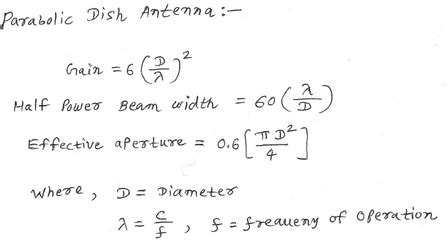 Parabolic Dish Antenna:-
Gain = 6 (D/λ)²
Half Power Beam width = 60 (λ/D)
Effective aperture = 0.6 [πD²/4]
Where, D = Diameter
λ = c/f , f = freaueny of Operation